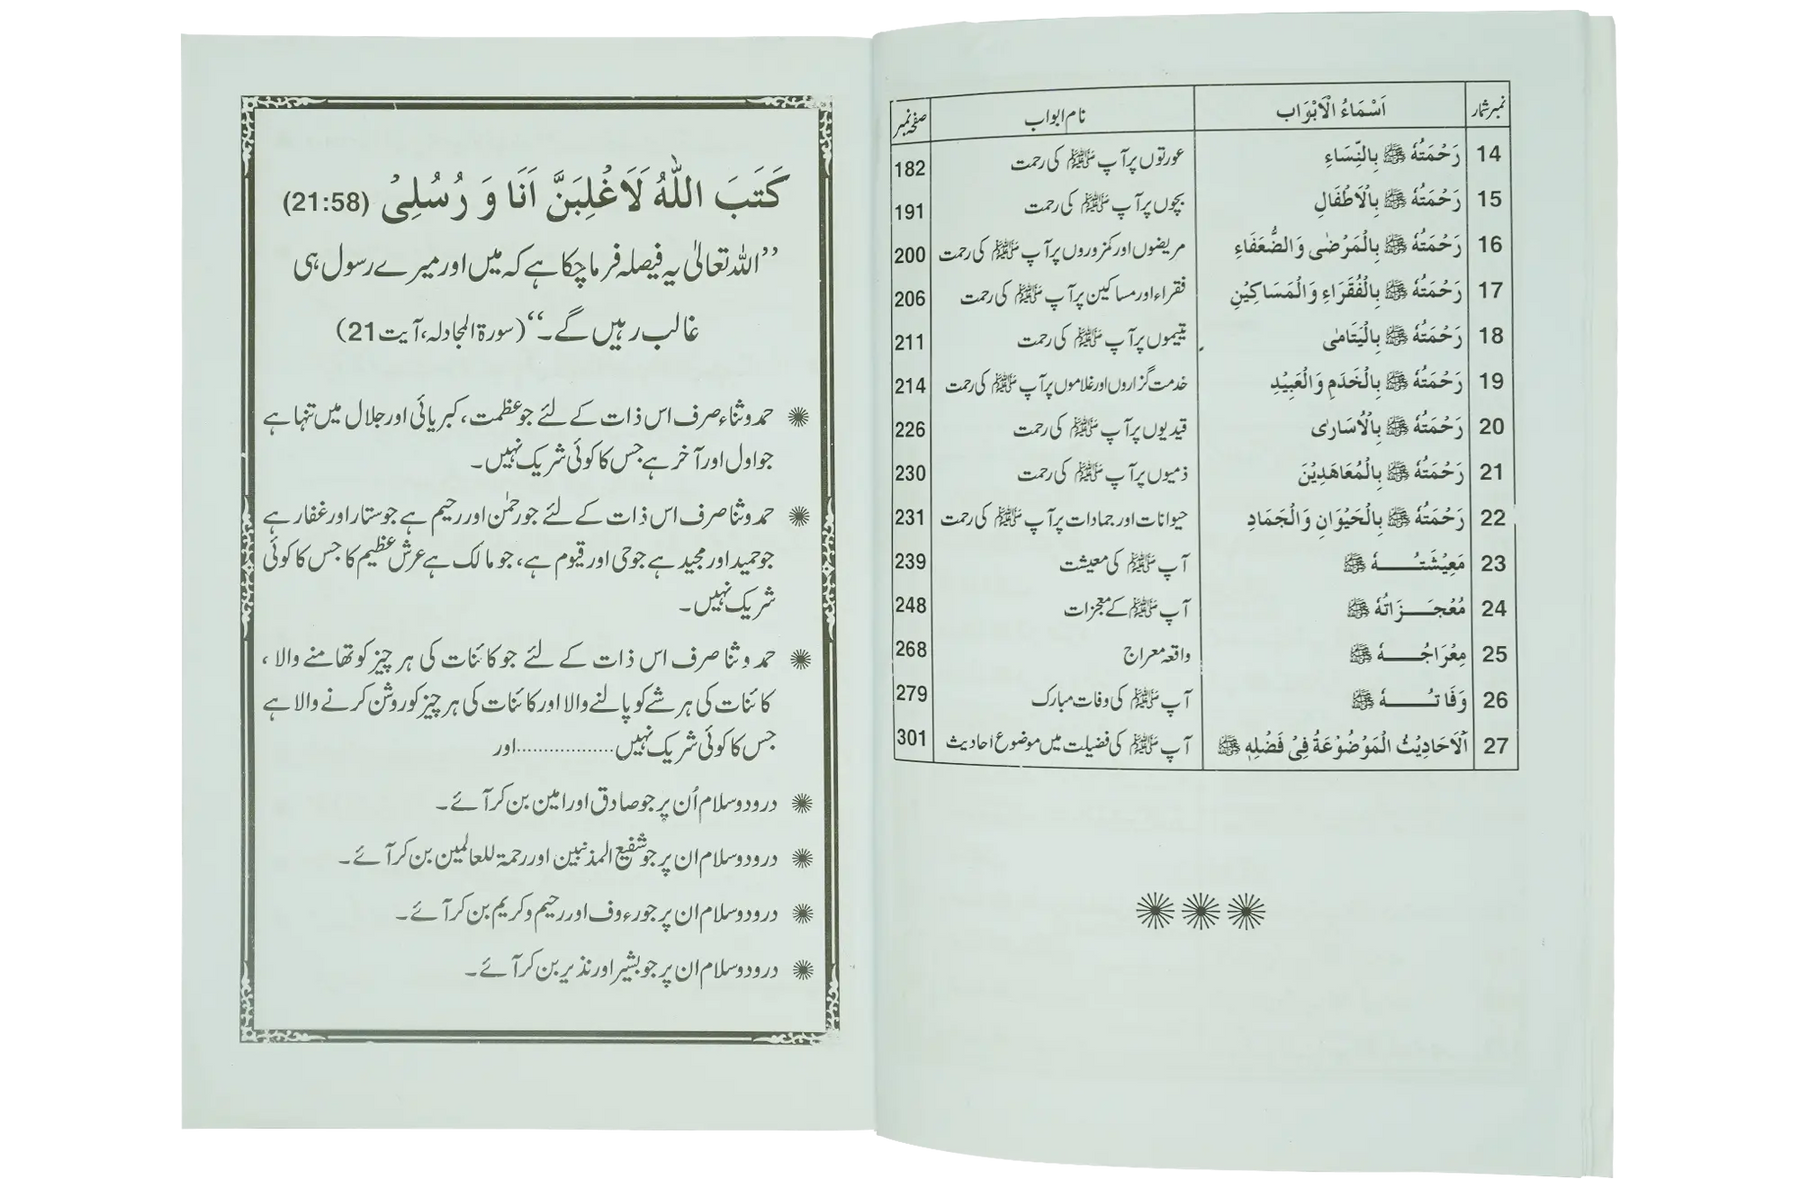 نمبر شمار | اَسْمَاءُ الْاَبْوَاب | نام ابواب | صفحہ نمبر
14 | رَحْمَتُهٗ ﷺ بِالنِّسَاءِ | عورتوں پر آپ ﷺ کی رحمت | 182
15 | رَحْمَتُهٗ ﷺ بِالْاَطْفَالِ | بچوں پر آپ ﷺ کی رحمت | 191
16 | رَحْمَتُهٗ ﷺ بِالْمَرْضٰى وَالضُّعَفَاءِ | مریضوں اور کمزوروں پر آپ ﷺ کی رحمت | 200
17 | رَحْمَتُهٗ ﷺ بِالْفُقَرَاءِ وَالْمَسَاكِيْنِ | فقراء اور مساکین پر آپ ﷺ کی رحمت | 206
18 | رَحْمَتُهٗ ﷺ بِالْيَتَامٰى | یتیموں پر آپ ﷺ کی رحمت | 211
19 | رَحْمَتُهٗ ﷺ بِالْخَدَمِ وَالْعَبِيْدِ | خدمت گزاروں اور غلاموں پر آپ ﷺ کی رحمت | 214
20 | رَحْمَتُهٗ ﷺ بِالْاُسَارٰى | قیدیوں پر آپ ﷺ کی رحمت | 226
21 | رَحْمَتُهٗ ﷺ بِالْمُعَاهَدِيْنَ | ذمیوں پر آپ ﷺ کی رحمت | 230
22 | رَحْمَتُهٗ ﷺ بِالْحَيْوَانِ وَالْجَمَادِ | حیوانات اور جمادات پر آپ ﷺ کی رحمت | 231
23 | مَعِيْشَتُـــــهٗ ﷺ | آپ ﷺ کی معیشت | 239
24 | مُعْجِـــزَاتُهٗ ﷺ | آپ ﷺ کے معجزات | 248
25 | مِعْرَاجُـــــهٗ ﷺ | واقعہ معراج | 268
26 | وَفَاتُـــــهٗ ﷺ | آپ ﷺ کی وفات مبارک | 279
27 | اَلْاَحَادِيْثُ الْمَوْضُوْعَةُ فِىْ فَضْلِهٖ ﷺ | آپ ﷺ کی فضیلت میں موضوع احادیث | 301
كَتَبَ اللّٰهُ لَاَغْلِبَنَّ اَنَا وَ رُسُلِىْ (21:58)
’’اللہ تعالیٰ یہ فیصلہ فرما چکا ہے کہ میں اور میرے رسول ہی
غالب رہیں گے۔‘‘ (سورۃ المجادلہ، آیت 21)
حمد و ثناء صرف اس ذات کے لئے جو عظمت، کبریائی اور جلال میں تنہا ہے
جو اول اور آخر ہے جس کا کوئی شریک نہیں۔
حمد و ثنا صرف اس ذات کے لئے جو رحمٰن اور رحیم ہے جو ستار اور غفار ہے
جو حمید اور مجید ہے جو حی اور قیوم ہے، جو مالک ہے عرش عظیم کا جس کا کوئی
شریک نہیں۔
حمد و ثنا صرف اس ذات کے لئے جو کائنات کی ہر چیز کو تھامنے والا،
کائنات کی ہر شے کو پالنے والا اور کائنات کی ہر چیز کو روشن کرنے والا ہے
جس کا کوئی شریک نہیں..................اور
درود و سلام اُن پر جو صادق اور امین بن کر آئے۔
درود و سلام ان پر جو شفیع المذنبین اور رحمۃ للعالمین بن کر آئے۔
درود و سلام ان پر جو رءوف اور رحیم و کریم بن کر آئے۔
درود و سلام ان پر جو بشیر اور نذیر بن کر آئے۔